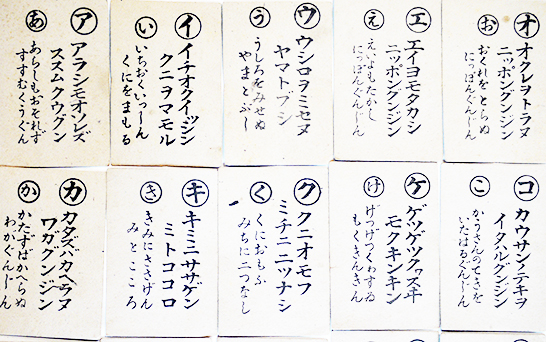 ア
あ
アラシモオソレズ
ススムクウグン
あらしもおそれず
すすむくうぐん
イ
い
イチオクイッシン
クニヲマモル
いちおくいっしん
くにをまもる
ウ
う
ウシロヲミセヌ
ヤマトブシ
うしろをみせぬ
やまとぶし
エ
え
エイヨモタカシ
ニッポングンジン
えいよもたかし
にっぽんぐんじん
オ
お
オクレヲトラヌ
ニッポングンジン
おくれをとらぬ
にっぽんぐんじん
カ
か
カタズバカヘラヌ
ワガグンジン
かたずばかへらぬ
わかぐんじん
キ
き
キミニササゲン
ミトココロ
きみにささげん
みとこころ
ク
く
クニオモフ
ミチニニツナシ
くにおもふ
みちに二つなし
ケ
け
ゲツゲツクヮスヰ
モクキンキン
げつげつくわすゐ
もくきんきん
コ
こ
カウサンノテキヲ
イタハルグンジン
かうさんのてきを
いたはるぐんじん